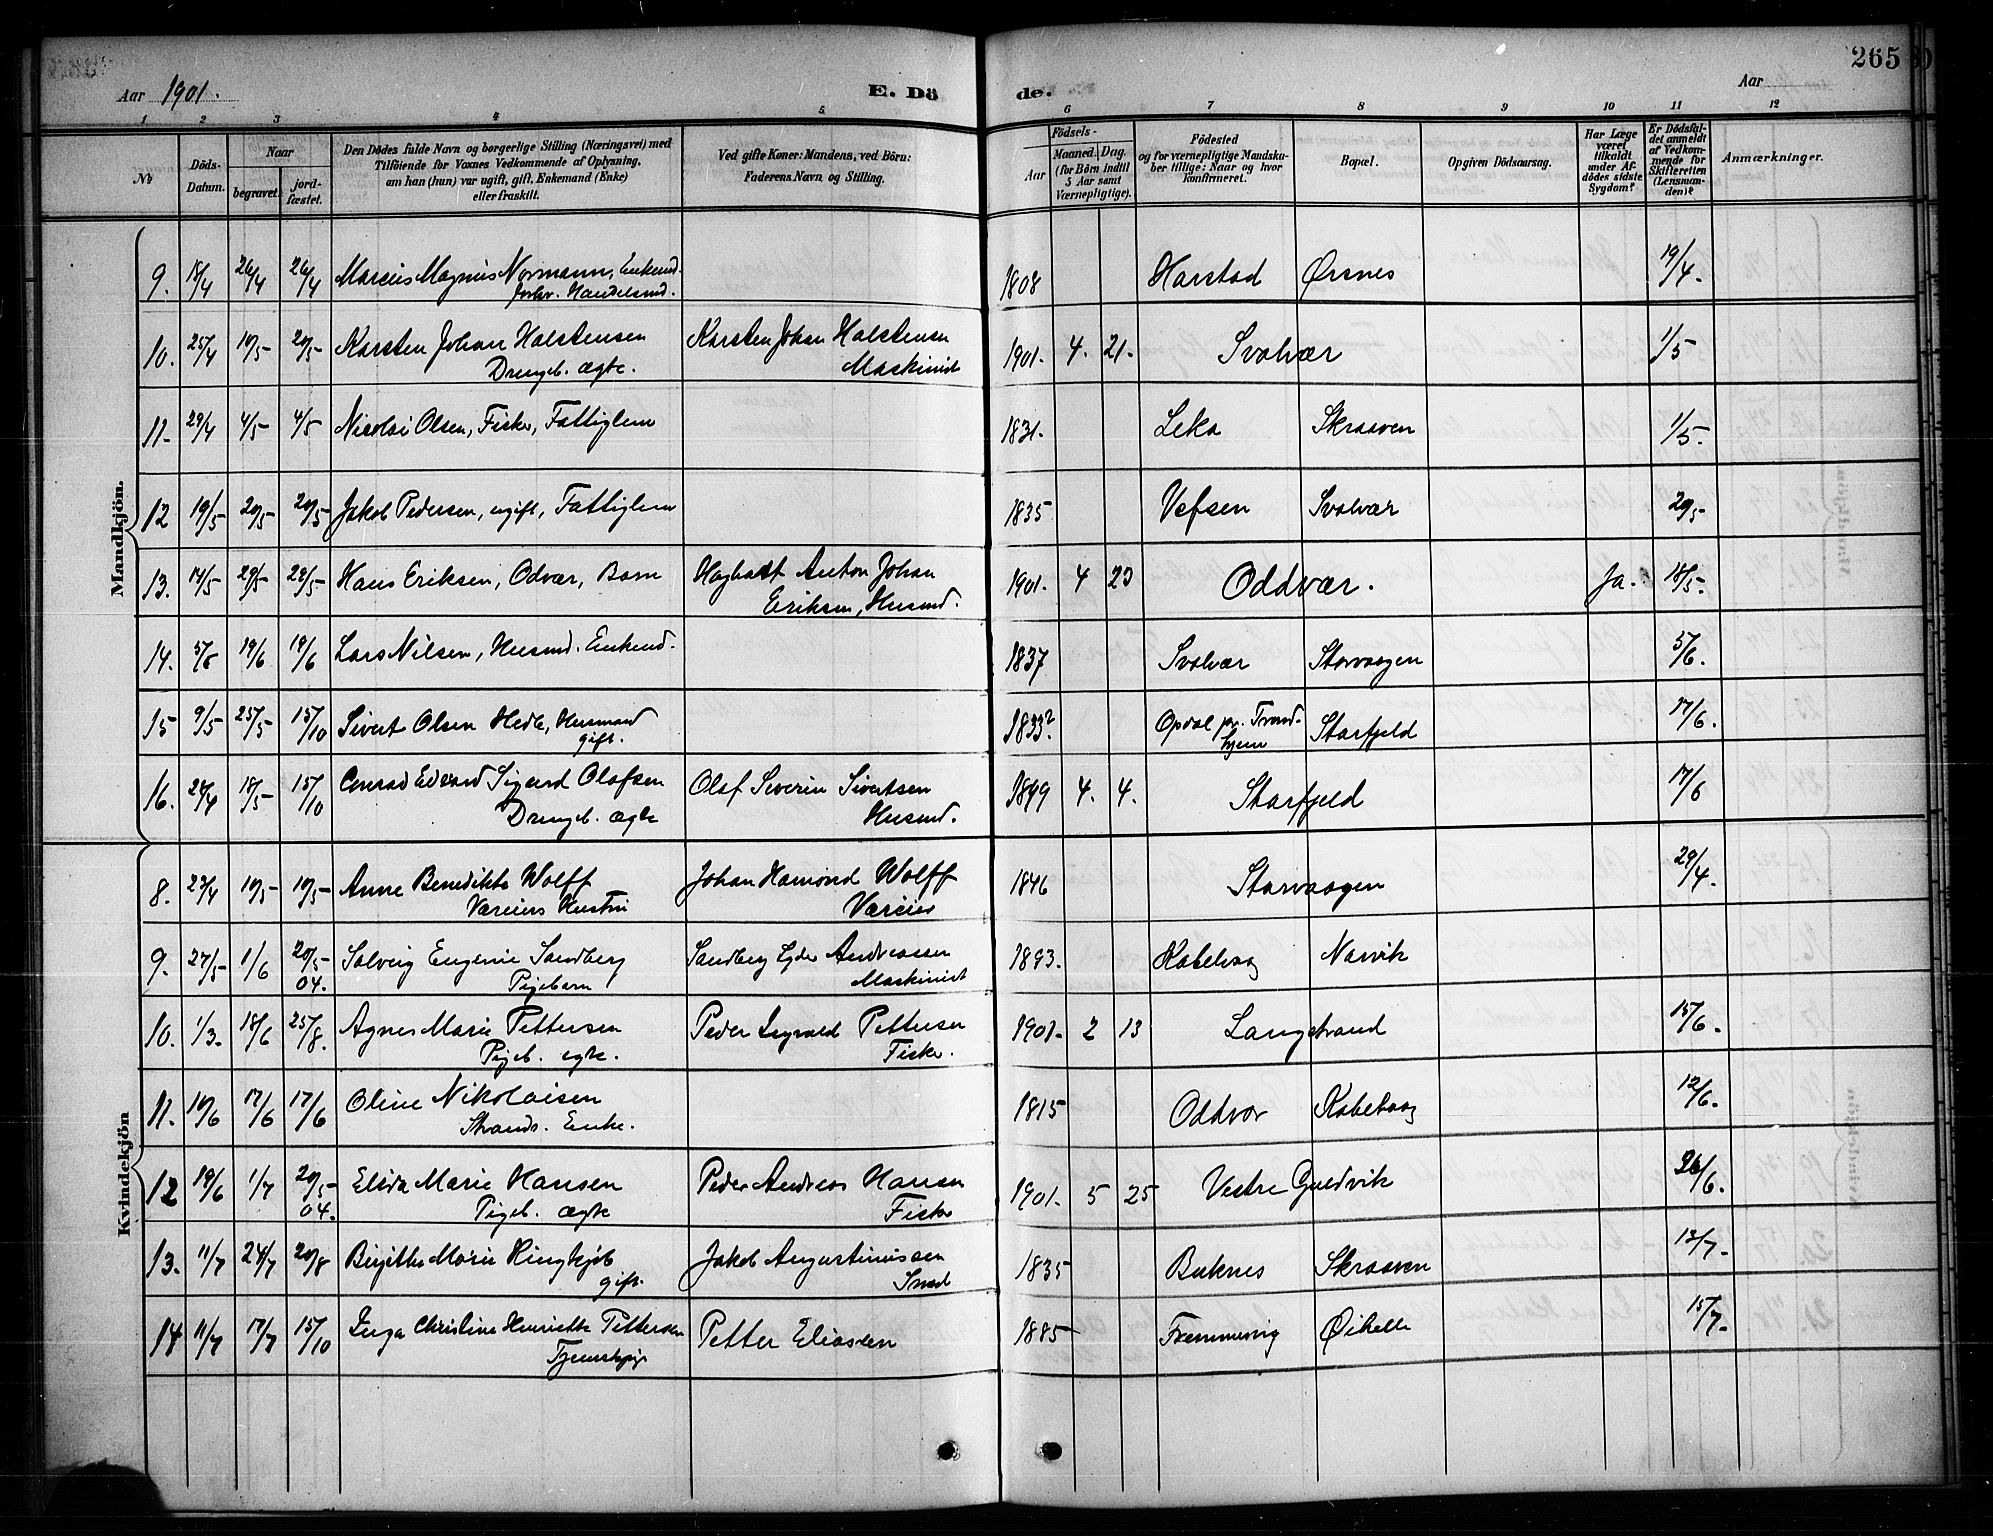 265
Aar 1901.
E. Dö
de.
Aar
1 2 3 4 5 6 7 8 9 10 11 12
No
Döds-Datum.
Naar
begravet.
jord-fæstet.
Den Dödes fulde Navn og borgerlige Stilling (Næringsvei) med
Tilföiende for Voxnes Vedkommende af Oplysning,
om han (hun) var ugift, gift, Enkemand (Enke)
eller fraskilt.
Ved gifte Koner: Mandens, ved Börn:
Faderens Navn og Stilling.
Födsels-
Aar
Maaned. Dag.
(for Börn indtil
5 Aar samt
Værnepligtige).
Födested
og for værnepligtige Mandska-
ber tillige: Naar og hvor
konfirmeret.
Bopæl.
Opgiven Dödsaarsag.
Har Læge
været
tilkaldt
under Af-
dödes sidste
Sygdom?
Er Dödsfal-
det anmeldt
af Vedkom-
mende for
Skifteretten
(Lensman-
den)?
Anmærkninger.
Mandkjön.
9. 18/4 26/4 26/4 Marcus Magnus Normann, Enkemd. 1808 Harstad Ørsnes 19/4.
forhv. Handelsmd.
10. 25/4 10/5 20/5 Karsten Johan Halstensen Karsten Johan Halstensen 1901. 4. 21. Svolvær 1/5
Drengeb. ægte. Maskinist
11. 29/4 4/5 4/5 Nicolai Olsen, Fisker, Fattiglem 1831. Leka Skraaven 1/5.
12 19/5 20/5 20/5 Jakob Pedersen, ugift, Fattiglem 1835 Vefsen Svolvær 20/5
13. 14/5 29/5 29/5 Hans Eriksen, Odvær, Barn Hagbart Anton Johan 1901. 4 23 Oddvær. Ja. 18/5.
Eriksen, Husmd.
14. 5/6 19/6 19/6 Lars Nilsen, Husmd. Enkemd. 1837 Svolvær Storvaagen 5/6.
15 9/5 25/5 15/10 Sivert Olsen Hedle, Husmand 1833? Opdal pr. Trond- Storfjeld 17/6.
gift. hjem
16. 24/4 18/5 15/10 Conrad Edvard Sigurd Olafsen Olaf Severin Sivertsen 1899 4. 4. Storfjeld 17/6
Drengeb. ægte Husmd.
Kvindekjön
8. 23/4 10/5 10/5 Anne Benedikte Wolff Johan Hamond Wolff 1846 Storvaagen 29/4.
Væreiers Hustru Væreier
9. 27/5 1/6 20/5 Solveig Eugenie Sandberg Sandberg Eyder Andreassen 1893. Kabelvaag Narvik
04. Pigebarn Maskinist
10. 1/3. 18/6 25/8. Agnes Marie Pettersen Peder Sigvald Pettersen 1901. 2 13 Langstrand 15/6.
Pigeb. ægte. Fisker.
11. 10/6 17/6 17/6 Oline Nikolaisen 1815 Oddvær Kabelvaag 12/6.
Strands. Enke.
12 19/6 1/7 20/5 Elida Marie Hansen Peder Andreas Hansen 1901. 5 25 Vestre Guldvik 26/6.
04. Pigeb. ægte Fisker
13. 11/7 24/7 20/8 Birgithe Marie Ringkjøb Jakob Augustinussen 1835 Buknes Skraaven 12/7.
gift. Smed
14 11/7 17/7 15/10 Inga Christine Henriette Pettersen Petter Eliassen 1885 Fremmervig Øihelle 15/7.
Tjenestepige